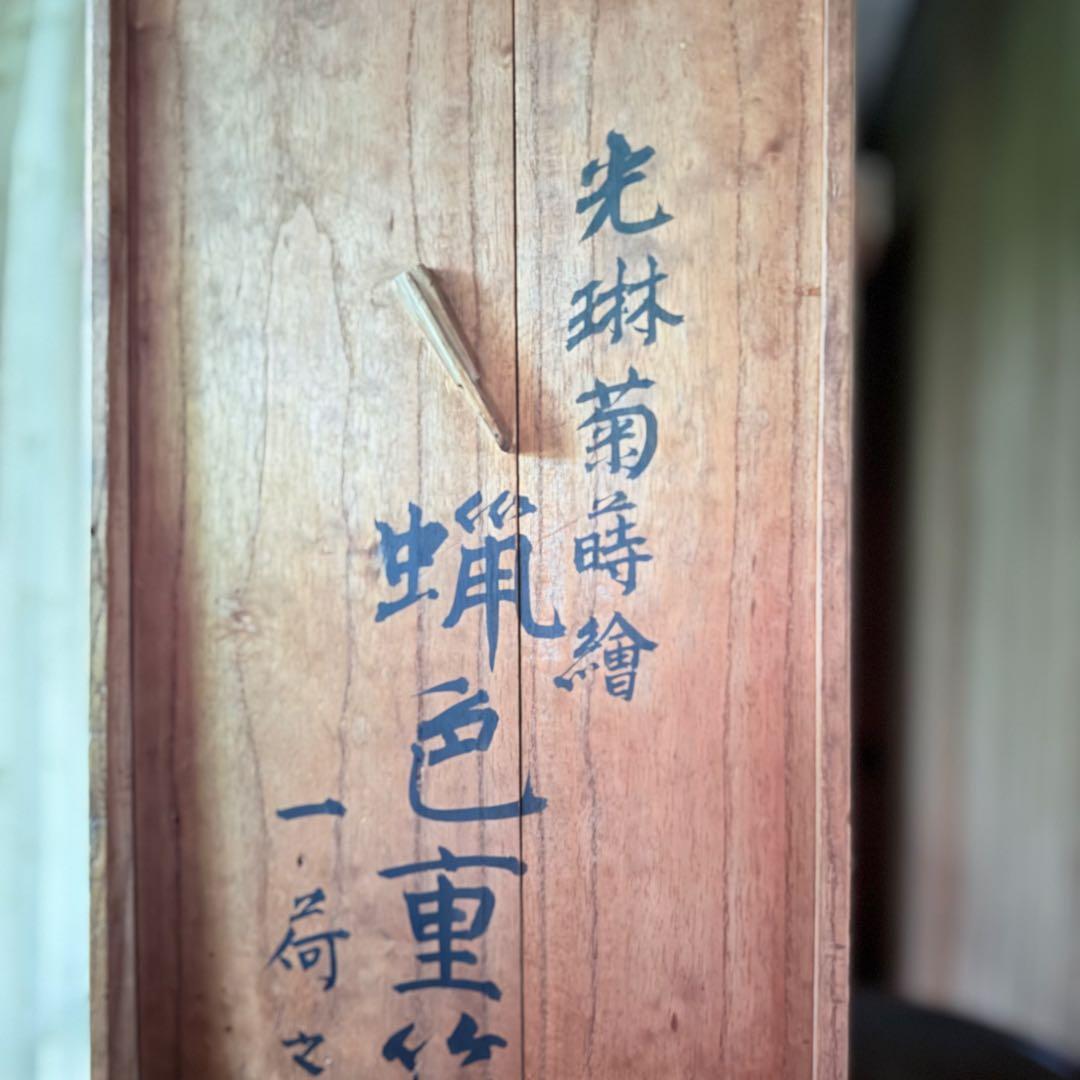 光琳菊蒔繪
蝋色重
一荷之